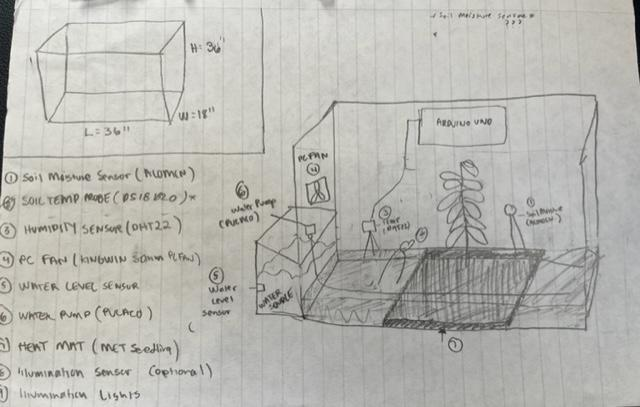 ✓ Soil moisture sensor *
???
H = 36"
W = 18"
L = 36"
① Soil Moisture Sensor (ALOMCN)
② SOIL TEMP PROBE (DS18B20) *
③ HUMIDITY SENSOR (DHT22)
④ PC FAN (KINGWIN 80mm PC FAN)
⑤ WATER LEVEL SENSOR
⑥ WATER PUMP (PULACO)
⑦ HEAT MAT (MET Seedling)
⑧ Illumination Sensor (optional)
⑨ Illumination Lights
ARDUINO UNO
PC FAN
④
⑥
Water Pump
(PULACO)
③
(DHT22)
①
Soil Moisture
(ALOMCN)
②
⑤
Water
Level
sensor
WATER SOURCE
⑦